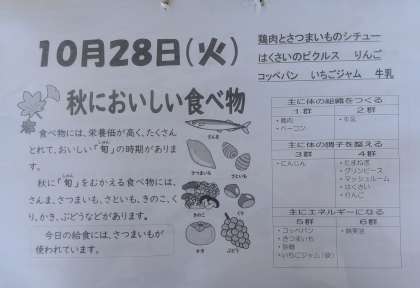 10月28日(火)
鶏肉とさつまいものシチュー
はくさいのピクルス りんご
コッペパン いちごジャム 牛乳
秋においしい食べ物
食べ物には、栄養価が高く、たくさん
とれて、おいしい「旬」の時期がありま
す。
秋に「旬」をむかえる食べ物には、
さんま、さつまいも、さといも、きのこ、く
り、かき、ぶどうなどがあります。
今日の給食には、さつまいもが
使われています。
さんま
さつまいも
さといも
きのこ
くり
かき
ぶどう
主に体の組織をつくる
1群 2群
・鶏肉
・ベーコン
・牛乳
主に体の調子を整える
3群 4群
・にんじん
・たまねぎ
・グリンピース
・マッシュルーム
・はくさい
・りんご
主にエネルギーになる
5群 6群
・コッペパン
・さつまいも
・砂糖
・いちごジャム(袋)